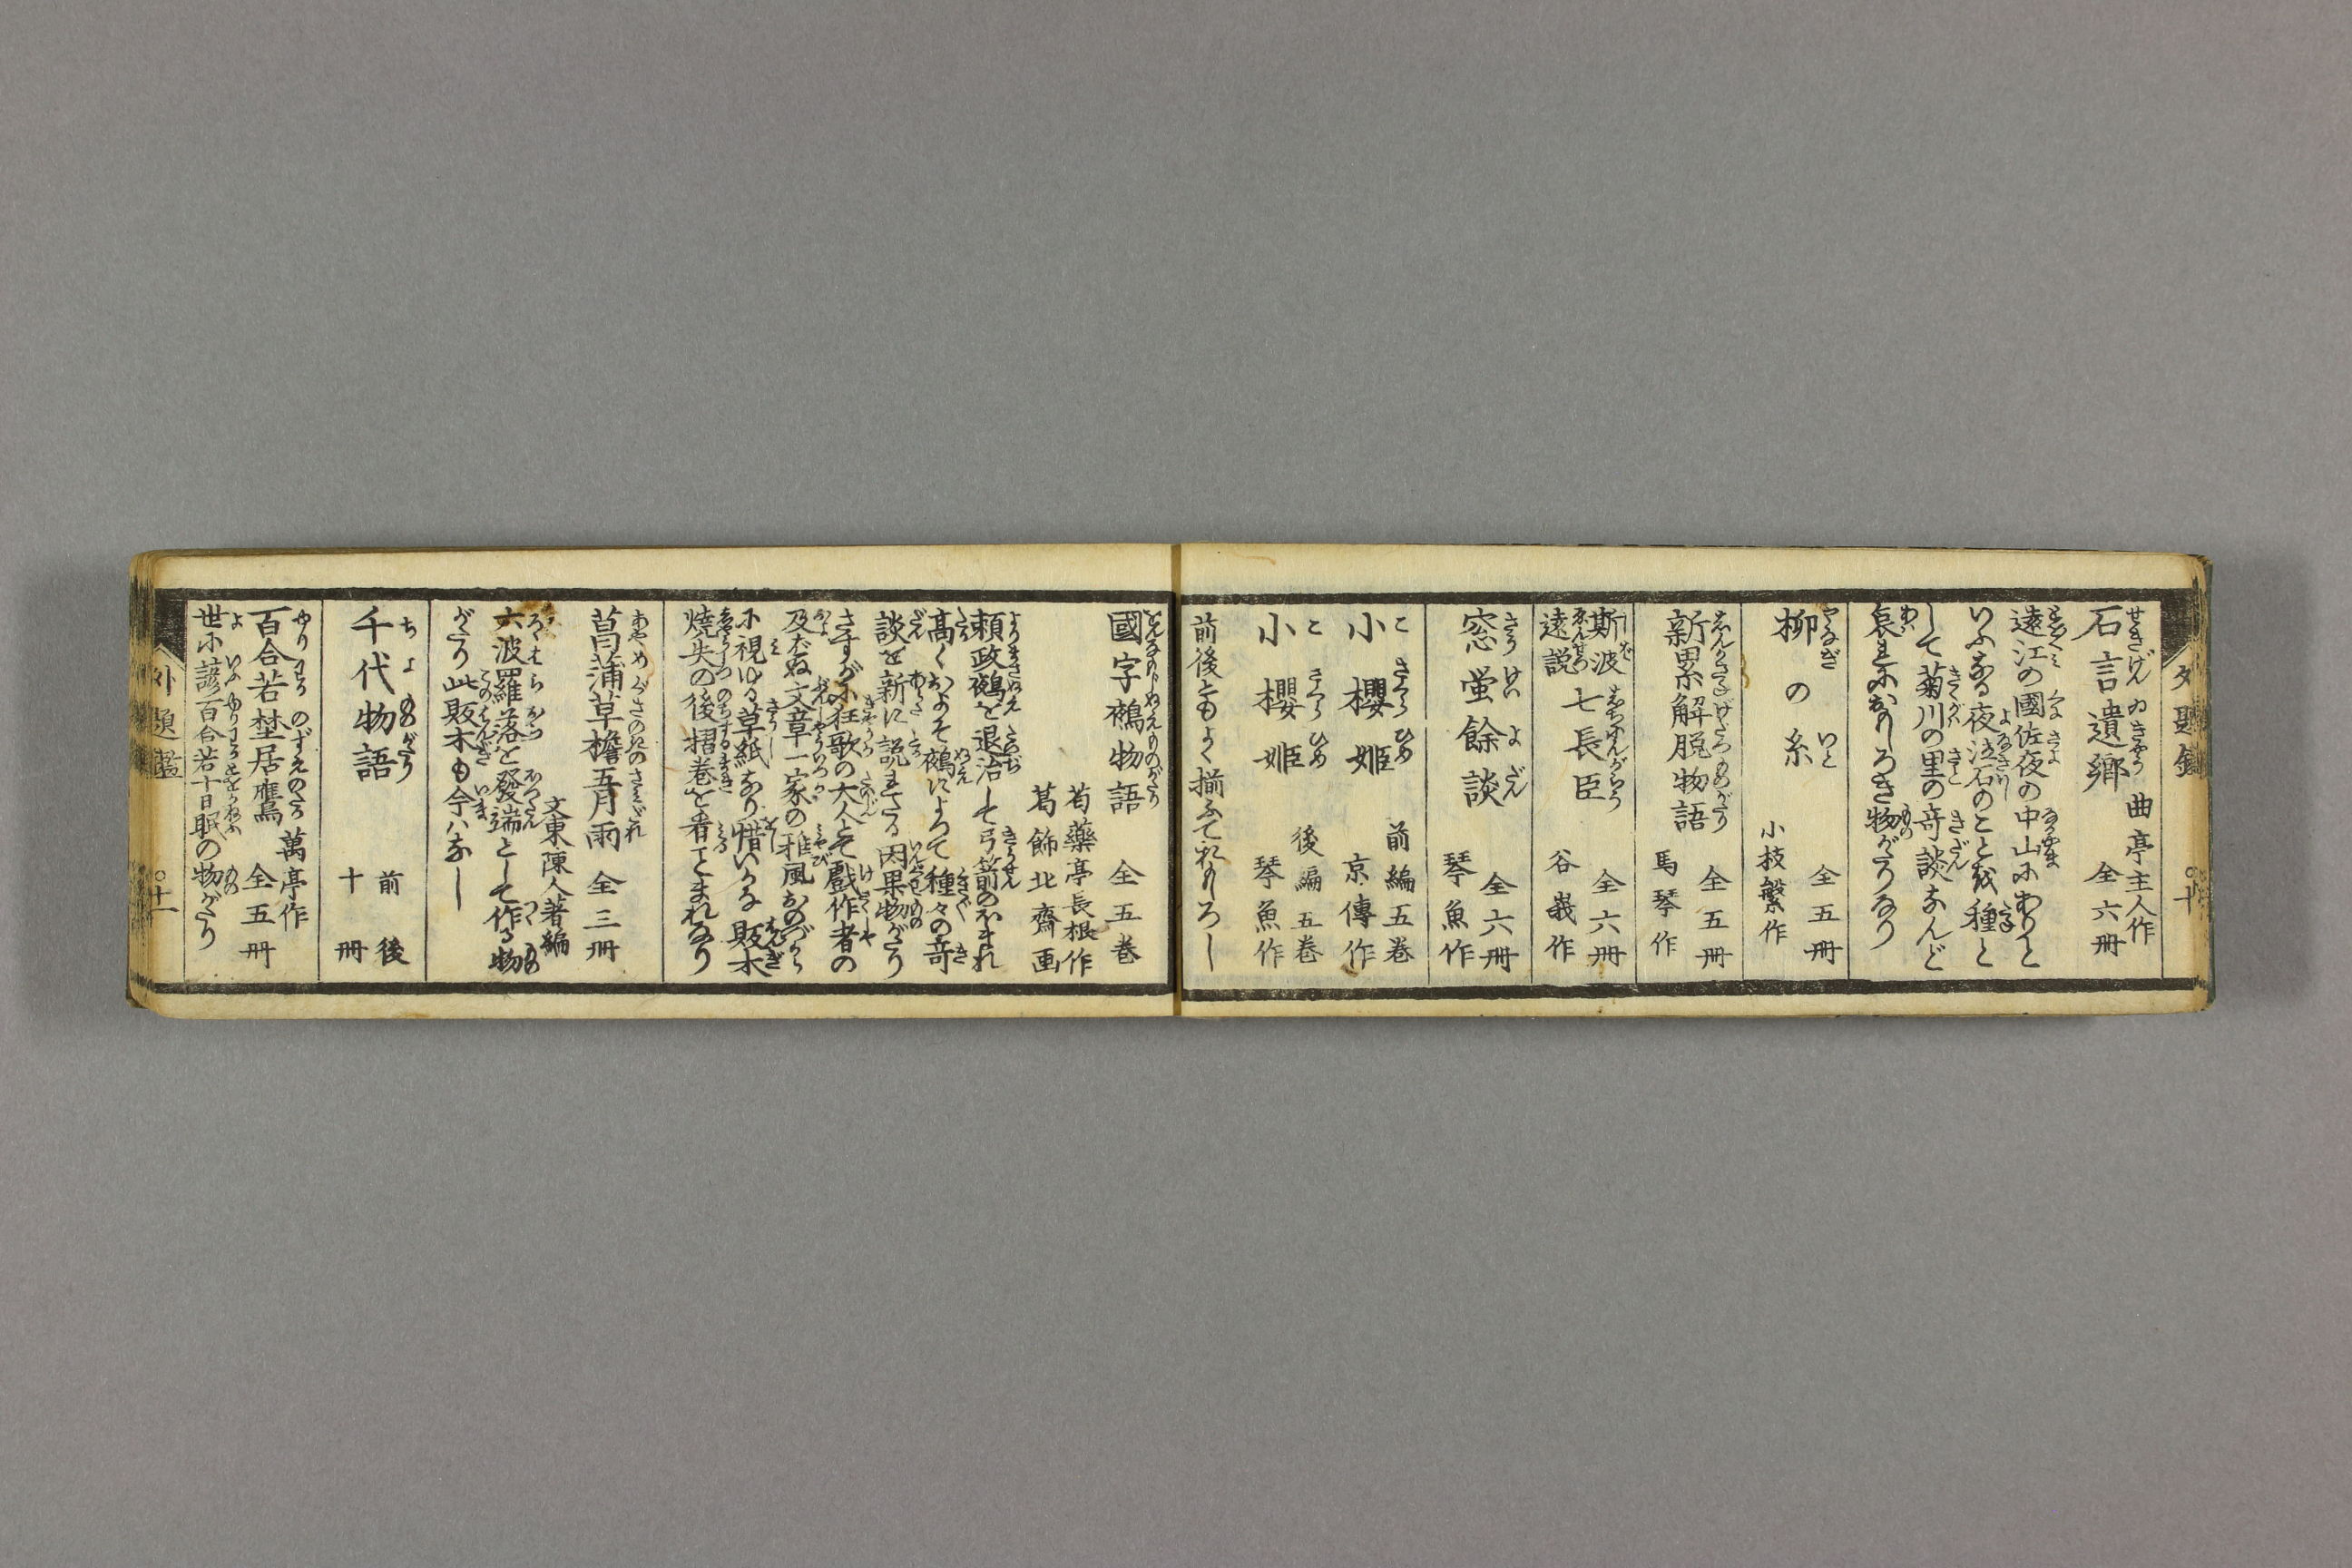 石言遺郷 曲亭主人作 全六冊
遠江の國佐夜の中山にありと
いふなる夜泣石のことを種と
して菊川の里の奇談なんど
哀れにおかしろき物がたりなり
柳の糸 全五冊 小枝繁作
新累解脱物語 全五冊 馬琴作
斯波遠説 七長臣 全六冊 谷峩作
窓蛍餘談 全六冊 琴魚作
小櫻姫 前編五巻 京傳作
小櫻姫 後編五巻 琴魚作
前後ともよく揃ふておもしろし
國字鵺物語 全五巻
芍藥亭長根作
葛飾北齋画
頼政鵺を退治して弓箭のほまれ
高くおよそ鵺によつて種々の奇
談を新に説れたる因果物がたり
さすがに狂歌の大人とて戯作者の
及ばぬ文章一家の雅風おのづから
に視ゆる草紙なり惜いかな販木
焼失の後摺巻を看ことまれなり
菖蒲草檐五月雨 全三冊
文東陳人著編
六波羅落を發端として作る物
がたり此販木も今ハなし
千代物語 前後 十冊
百合若埜居鷹 萬亭作 全五冊
世に諺百合若十日眠の物がたり
外題鑑 ○十一